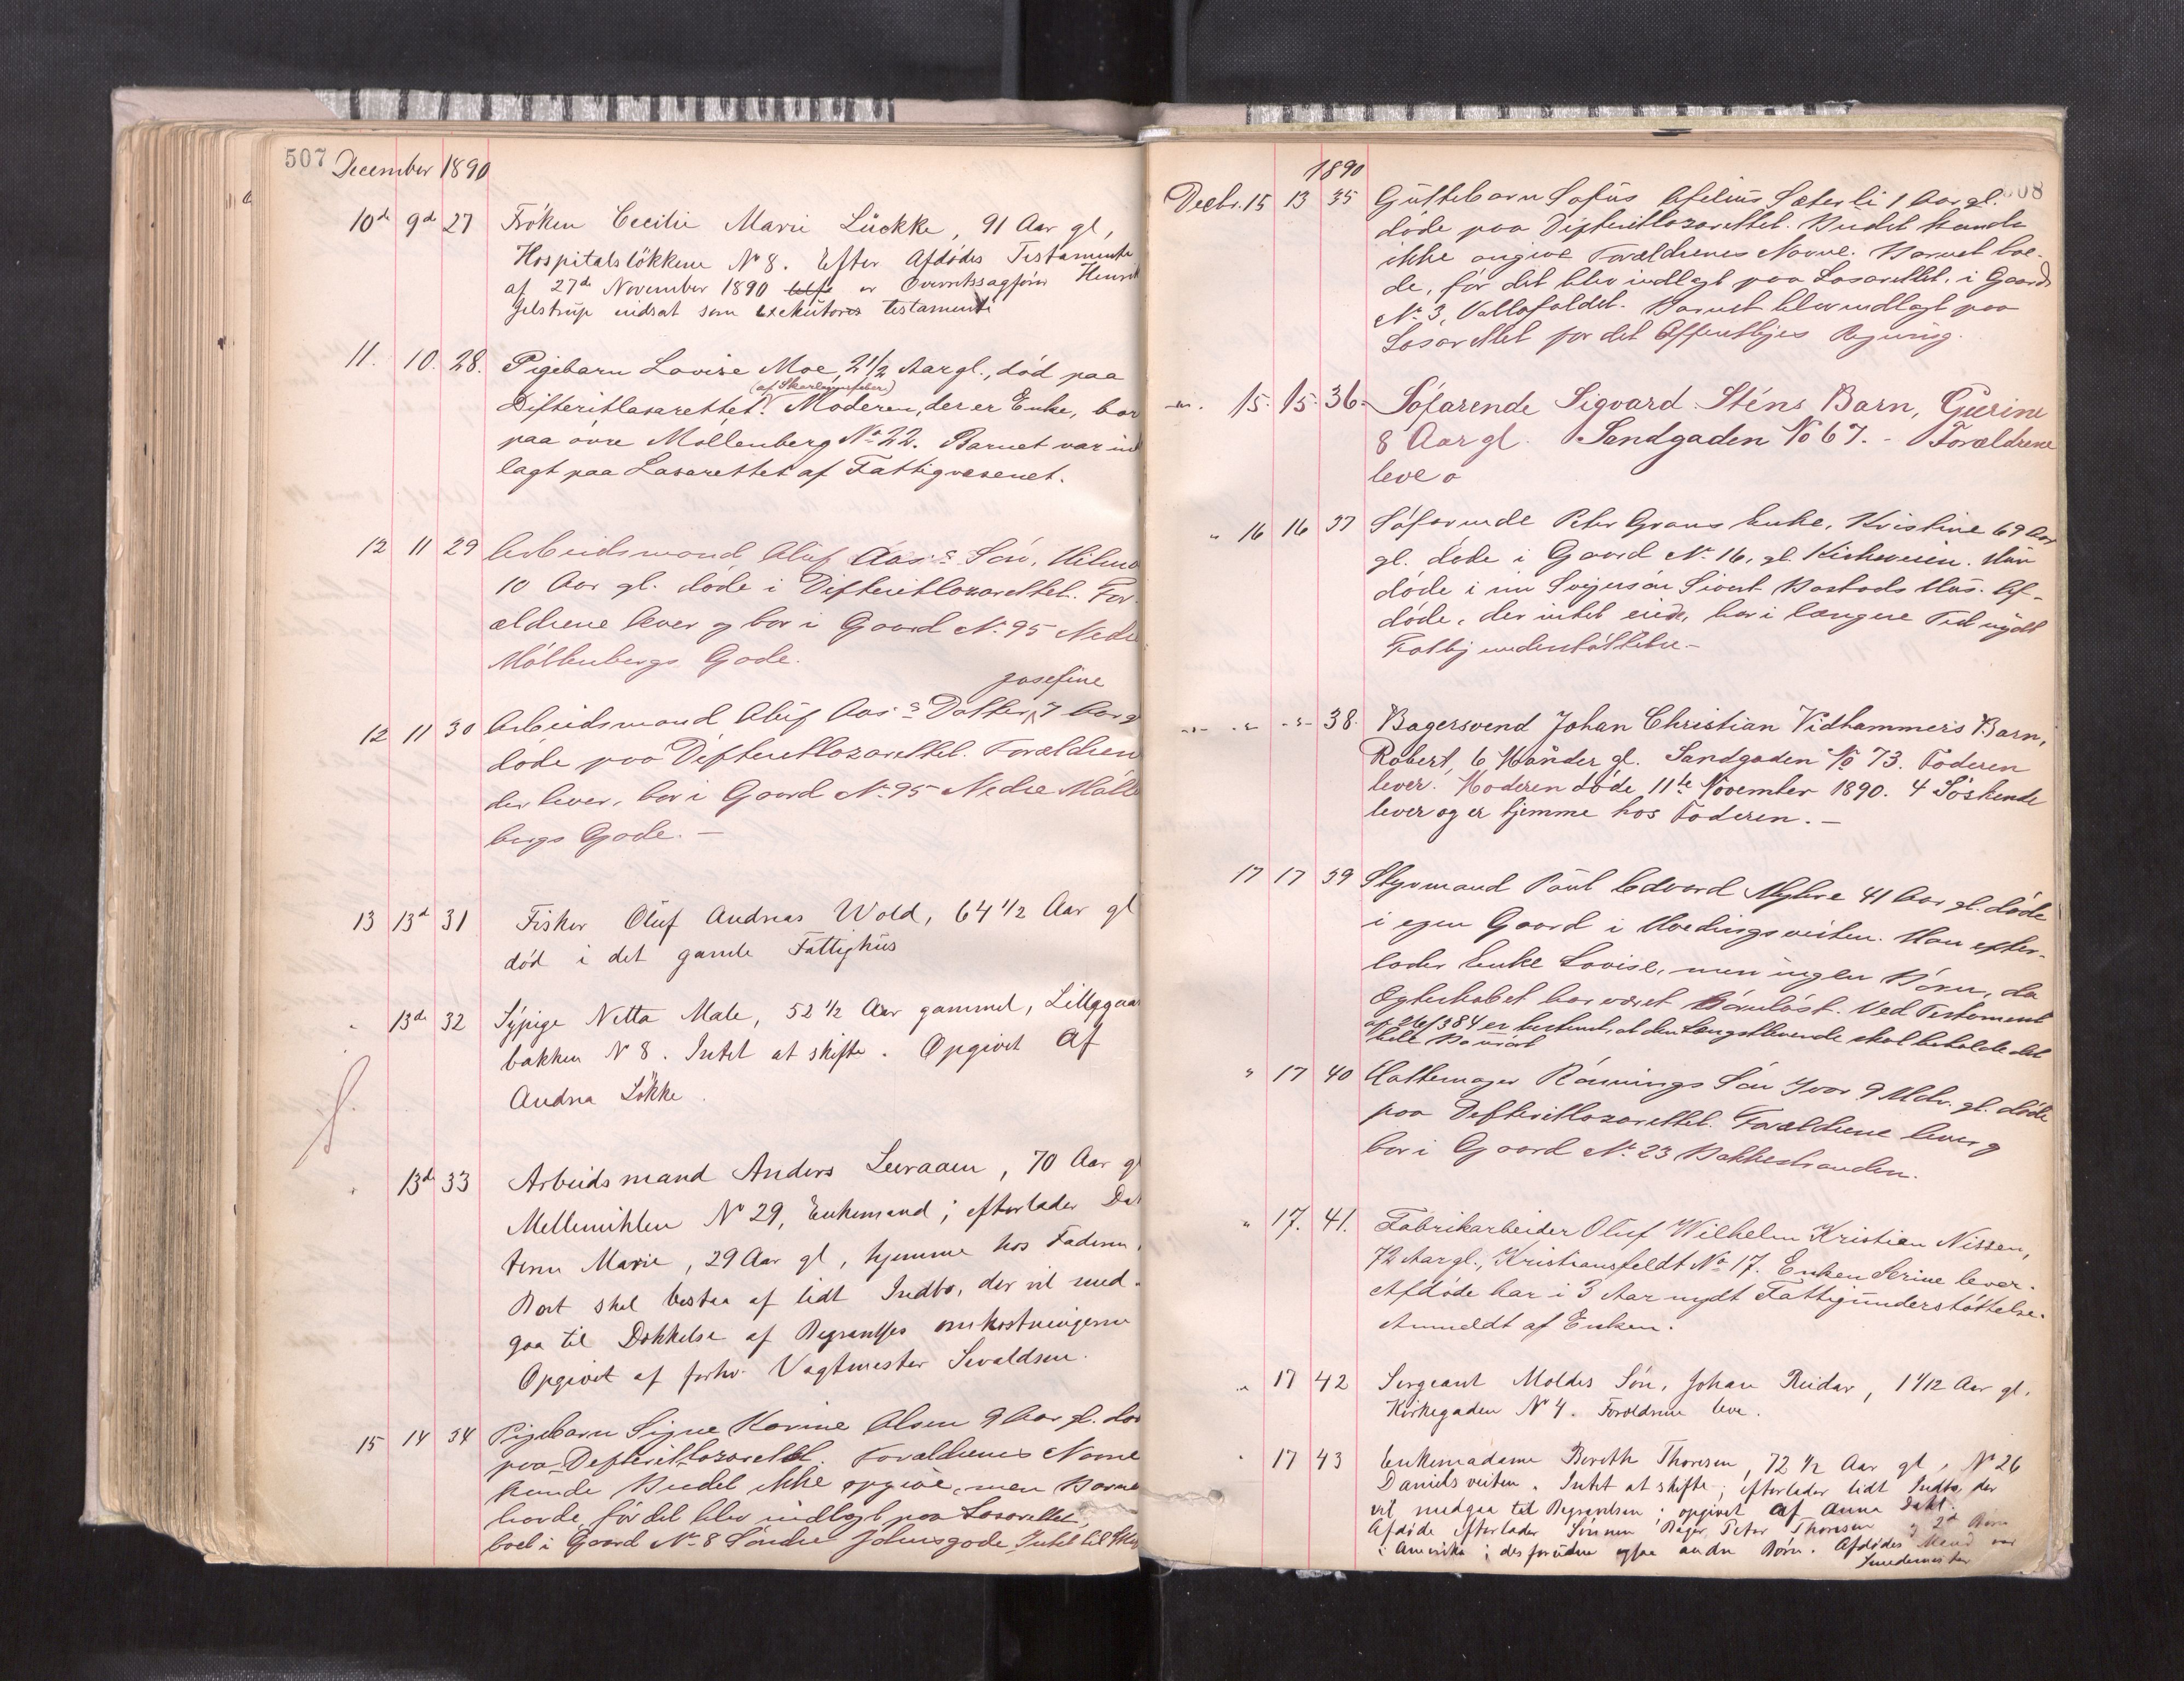 507 December 1890
10de 9de 27 Fröken Cecilie Marie Lückke, 91 Aar gl,
Hospitalslökkene No 8. Efter Afdödes Testamente
af 27de November 1890 er Overretssagförer Henrik
Jelstrup indsat som exekutores testamenti
11. 10. 28. Pigebarn Lovise Moe, 2 1/2 Aar gl., död paa
(af Skarlagensfeber)
Difteritlasarettet. Moderen, der er Enke, bor
paa övre Möllenberg No 22. Barnet var ind
lagt paa Lasarettet af Fattigvæsenet.
12 11 29 Arbeidsmand Oluf Aas's Sön, Hilmar
10 Aar gl. döde i Difteritlazarettet. For-
ældrene lever og bor i Gaard No. 95 Nedre
Möllenbergs Gade.
Josefine
12 11 30 Arbeidsmand Oluf Aas's Datter, 7 Aar g
döde paa Difteritlazarettet. Forældrene
der lever, bor i Gaard No. 95 Nedre Möllen
bergs Gade. —
13 13de 31 Fisker Oluf Andreas Wold, 64 1/2 Aar gl
död i det gamle Fattighus
" 13de 32 Sypige Netta Male, 52 1/2 Aar gammel, Lillegaar
bakken No 8. Intet at skifte. Opgivet Af
Andrea Lökke.
" 13de 33 Arbeidsmand Anders Leeraaen, 70 Aar gl
Mellemihlen No 29, Enkemand; efterlader Dat
teren Marie, 29 Aar gl, hjemme hos Faderen.
Boet skal bestaa af lidt Indbo, der vil med-
gaa til Dækkelse af Begravelses omkostningerne
Opgivet af forhv. Vagtmester Sivaldsen.
15 14 34 Pigebarn Signe Karine Olsen 9 Aar gl. död
paa Difteritlazarettet. Forældrenes Navne
kunde Budet ikke opgive, men Barnet
havde, för det blev indlagt paa Lasarettet,
boet i Gaard No. 8 Söndre Johnsgade. Intet til Skifte
1890
508
Decbr. 15 13 35 Guttebarn Sofus Ofelius Sæterli 1 Aar gl.
döde paa Difteritlazarettet. Budet kunde
ikke angive Forældrenes Navne. Barnet boe-
de, för det blev indlagt paa Lasarettet, i Gaard
No. 3, Vollafaldet. Barnet blev indlagt paa
Lasarettet for det Offentliges Regning.
-"- 15. 15. 36. Söfarende Sigvard Sténs Barn, Gurine
8 Aar gl. Sandgaden No 67. - Forældrene
leve
" 16 16 37 Söfarende Peter Grans Enke, Kristine 69 Aar
gl. döde i Gaard No. 16, gl. Kirkeveien. Hun
döde i sin Svigersön Sivert Bostads Hus. Af-
döde, der intet eiede, har i længere Tid nydt
Fattigunderstöttelse. -
-"- -"- -"- 38. Bagersvend Johan Christian Vidhammers Barn,
Robert, 6 Maaneder gl. Sandgaden No 73. Faderen
lever. Moderen döde 11te November 1890. 4 Söskende
lever og er hjemme hos Faderen. —
17 17 39 Styrmand Paul Edvard Myhre 41 Aar gl. döde
i egen Gaard i Hvedingsveiten. Han efter-
lader Enke Lovise, men ingen Börn, da
Ægteskabet har været barnlöst. Ved Testament
af 26/3 84 er bestemt, at den Længstlevende skal beholde det
hele Bo
" 17 40 Hattemager Rönnings Sön Ivar 9 Mdr. gl. döde
paa Difteritlazarettet. Forældrene lever og
bor i Gaard No. 23 Bakkestranden.
" 17. 41. Fabrikarbeider Oluf Wilhelm Kristian Nissen,
72 Aar gl., Kristiansfeldt No 17. Enken Serine lever.
Afdöde har i 3 Aar nydt Fattigunderstöttelse.
Anmeldt af Enken.
" 17 42 Sergeant Moldes Sön, Johan Reidar, 1 1/12 Aar gl.
Kirkegaden No 4. Forældrene leve.
" 17 43 Enkemadame Bereth Thoresen, 72 1/2 Aar gl, No 26
Daniels veiten. Intet at skifte; efterlader lidt Indbo, der
vil medgaa til Begravelsen; opgivet af Anna Dahl.
Afdöde efterlader Sönnen Bager Peter Thoresen og 2de Börn
i Amerika; desforuden ogsaa andre Börn. Afdödes Mand var
Smedemester